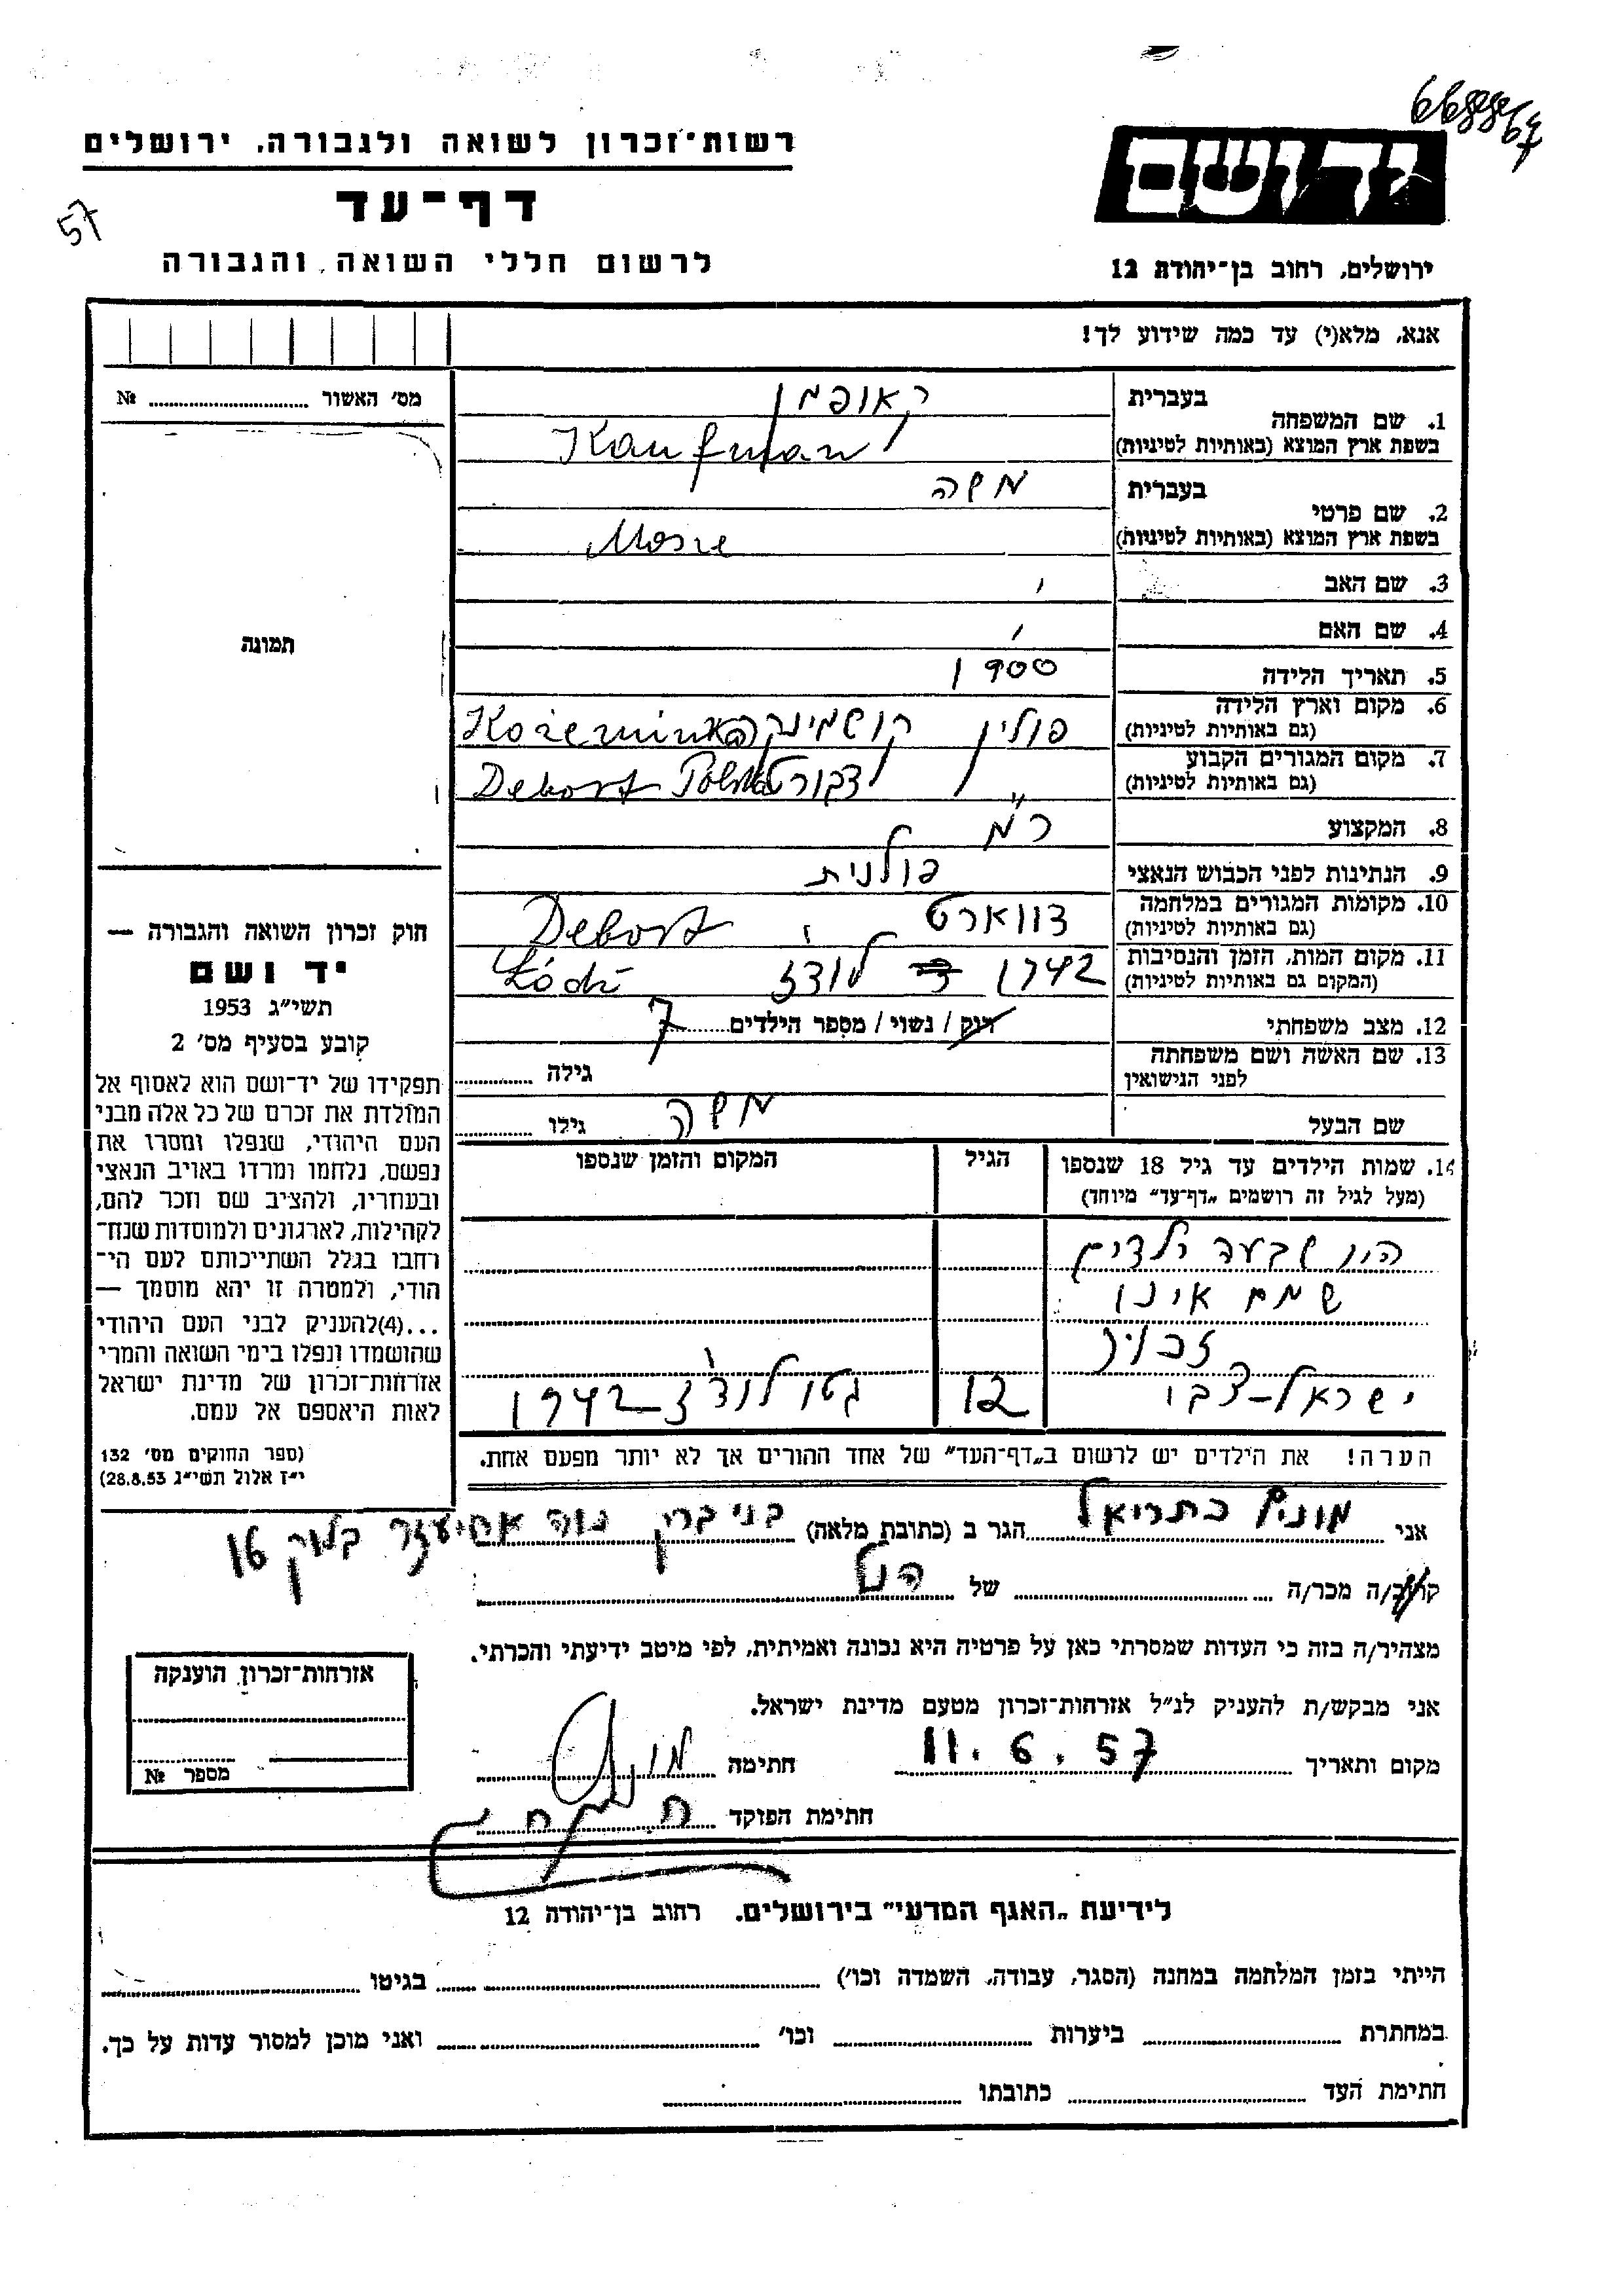 רשות־זכרון לשואה ולגבורה, ירושלים
יד ושם
דף־עד
57
לרשום חללי השואה והגבורה
ירושלים, רחוב בן־יהודה 12
אנא, מלא(י) עד כמה שידוע לך!
מס׳ האשור № ........
1. שם המשפחה
בעברית קאופמן
בשפת ארץ המוצא (באותיות לטיניות) Kaufman
2. שם פרטי
בעברית משה
בשפת ארץ המוצא (באותיות לטיניות)
3. שם האב
4. שם האם
5. תאריך הלידה 1900
6. מקום וארץ הלידה
(גם באותיות לטיניות) פולין
7. מקום המגורים הקבוע
(גם באותיות לטיניות)
8. המקצוע
9. הנתינות לפני הכבוש הנאצי פולנית
10. מקומות המגורים במלחמה
(גם באותיות לטיניות) Debort
11. מקום המות, הזמן והנסיבות
(המקום גם באותיות לטיניות) 1942 לודז Łódź
12. מצב משפחתי רוק / נשוי / מספר הילדים 7
13. שם האשה ושם משפחתה
לפני הנישואין גילה ........
שם הבעל משה גילו ........
תמונה
חוק זכרון השואה והגבורה —
יד ושם
תשי״ג 1953
קובע בסעיף מס׳ 2
תפקידו של יד־ושם הוא לאסוף אל
המולדת את זכרם של כל אלה מבני
העם היהודי, שנפלו ומסרו את
נפשם, נלחמו ומרדו באויב הנאצי
ובעוזריו, ולהציב שם וזכר להם,
לקהילות, לארגונים ולמוסדות שנח־
רחבו בגלל השתייכותם לעם הי־
הודי, ולמטרה זו יהא מוסמך —
...(4)להעניק לבני העם היהודי
שהושמדו ונפלו בימי השואה והמרי
אזרחות־זכרון של מדינת ישראל
לאות היאספם אל עמם.
(ספר החוקים מס׳ 132
י״ז אלול תשי״ג 28.8.53)
14. שמות הילדים עד גיל 18 שנספו
(מעל לגיל זה רושמים „דף־עד״ מיוחד)
הגיל
המקום והזמן שנספו
היו שבעה ילדים
שמם אינו
זכור
ישראל-צבי 12 גטו לודז 1942
הערה! את הילדים יש לרשום ב„דף־העד״ של אחד ההורים אך לא יותר מפעם אחת.
אני כתריאל הגר ב (כתובת מלאה) בני ברק נוה אחיעזר בלוק 16
קרוב/ה מכר/ה ........ של ........
מצהיר/ה בזה כי העדות שמסרתי כאן על פרטיה היא נכונה ואמיתית, לפי מיטב ידיעתי והכרתי.
אני מבקש/ת להעניק לנ״ל אזרחות־זכרון מטעם מדינת ישראל.
מקום ותאריך 11.6.57 חתימה
חתימת הפוקד
אזרחות־זכרון הוענקה
מספר №
לידיעת „האגף המדעי״ בירושלים, רחוב בן־יהודה 12
הייתי בזמן המלחמה במחנה (הסגר, עבודה, השמדה וכו׳) ........ בגיטו ........
במחתרת ........ ביערות ........ וכו׳ ........ ואני מוכן למסור עדות על כך.
חתימת העד ........ כתובתו ........